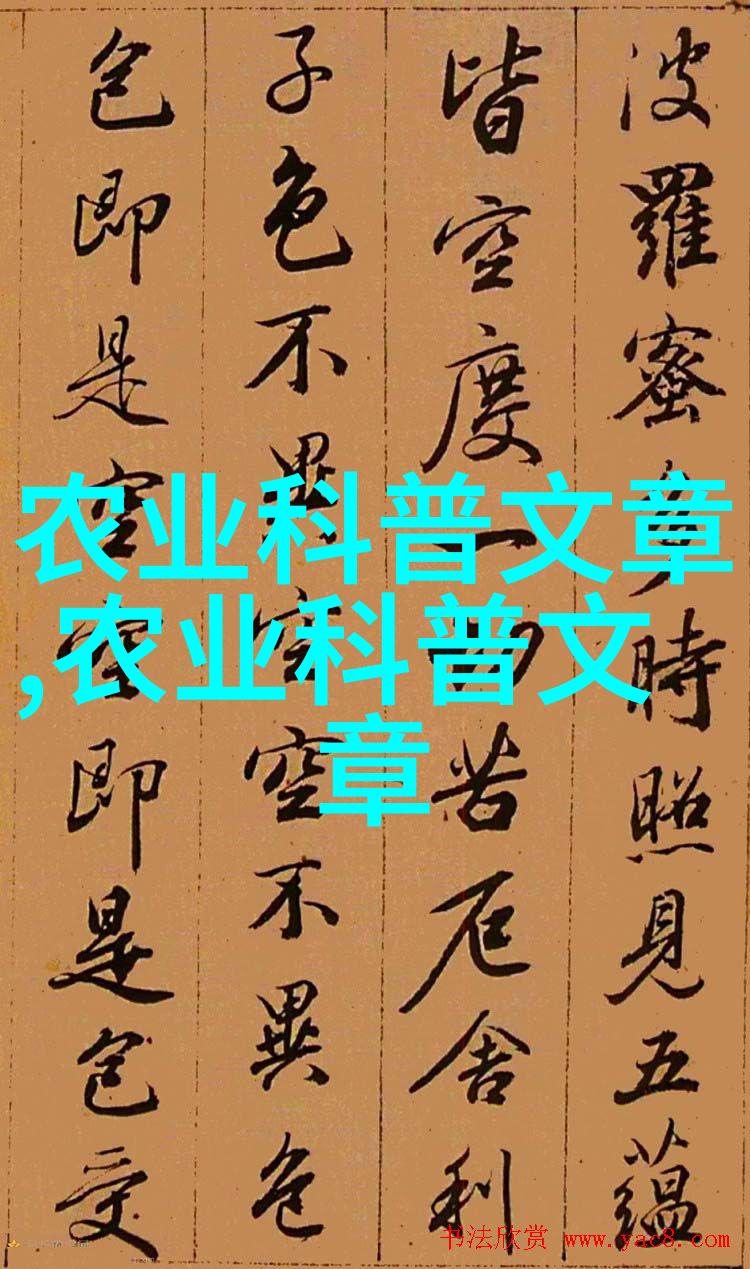 波羅蜜多時照見五蘊
皆空度一切苦厄舍利
子色不異空空不異色
色即是空空即是色受
农业科普文章
,农业科普文
章
书法欣赏 www.yac8.com